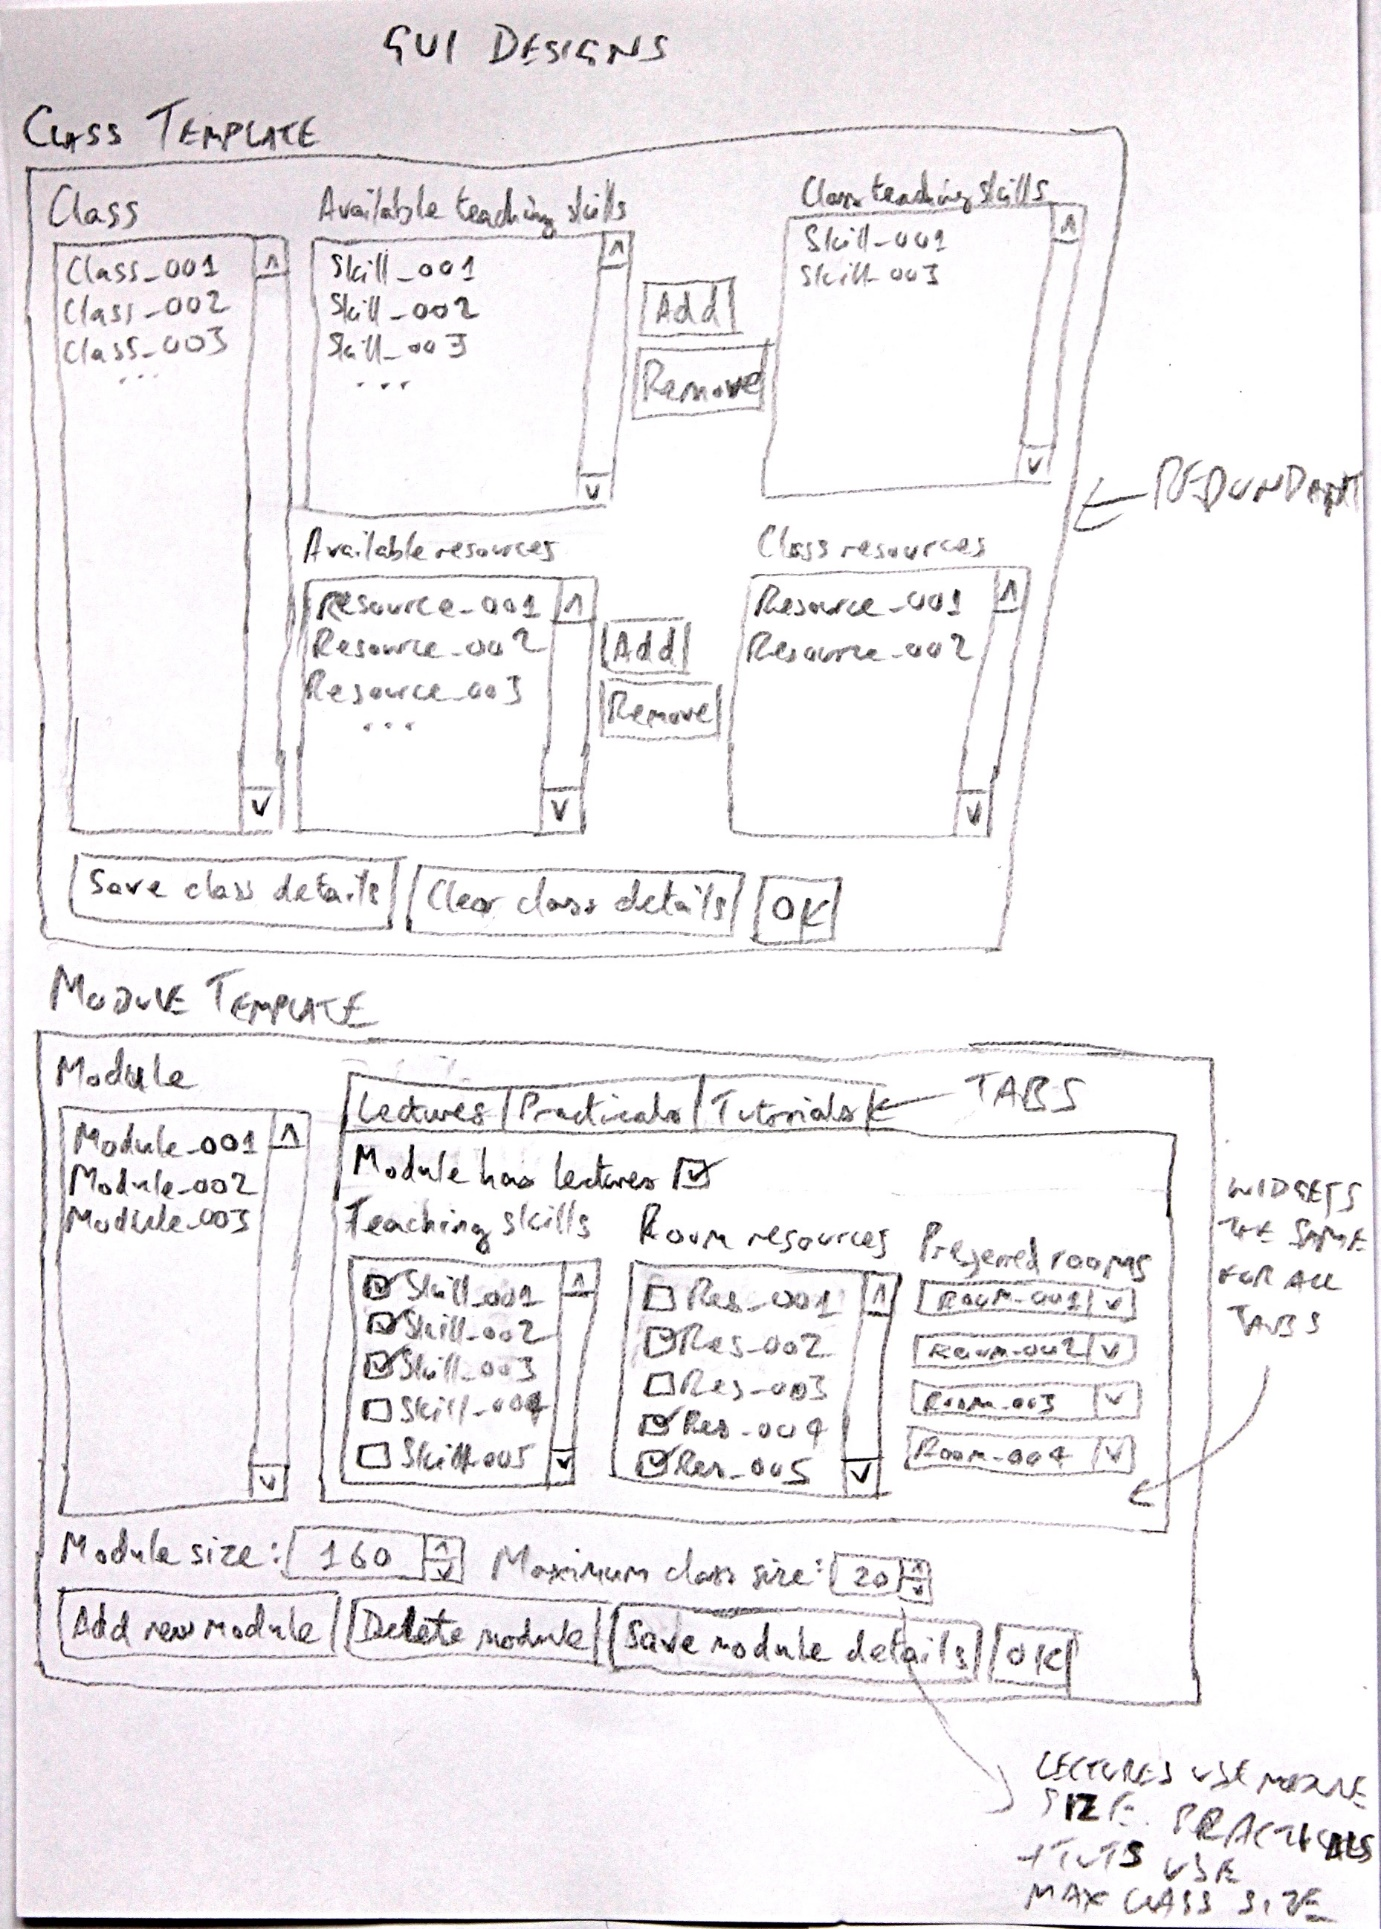 GUI DESIGNS
CLASS TEMPLATE
Class
Class_001
Class_002
Class_003
...
Available teaching skills
Skill_001
Skill_002
Skill_003
...
Add
Remove
Class teaching skills
Skill_001
Skill_003
REDUNDANT
Available resources
Resource_001
Resource_002
Resource_003
...
Add
Remove
Class resources
Resource_001
Resource_002
Save class details
Clear class details
OK
MODULE TEMPLATE
Module
Module_001
Module_002
Module_003
Lectures
Practicals
Tutorials
TABS
Module has lectures
Teaching skills
Skill_001
Skill_002
Skill_003
Skill_004
Skill_005
Room resources
Res_001
Res_002
Res_003
Res_004
Res_005
Preferred rooms
Room_001
Room_002
Room_003
Room_004
WIDGETS
THE SAME
FOR ALL
TABS
Module size: 160
Maximum class size: 20
Add new module
Delete module
Save module details
OK
LECTURES USE MODULE
SIZE. PRACTICALS
+ TUTS USE
MAX CLASS SIZE